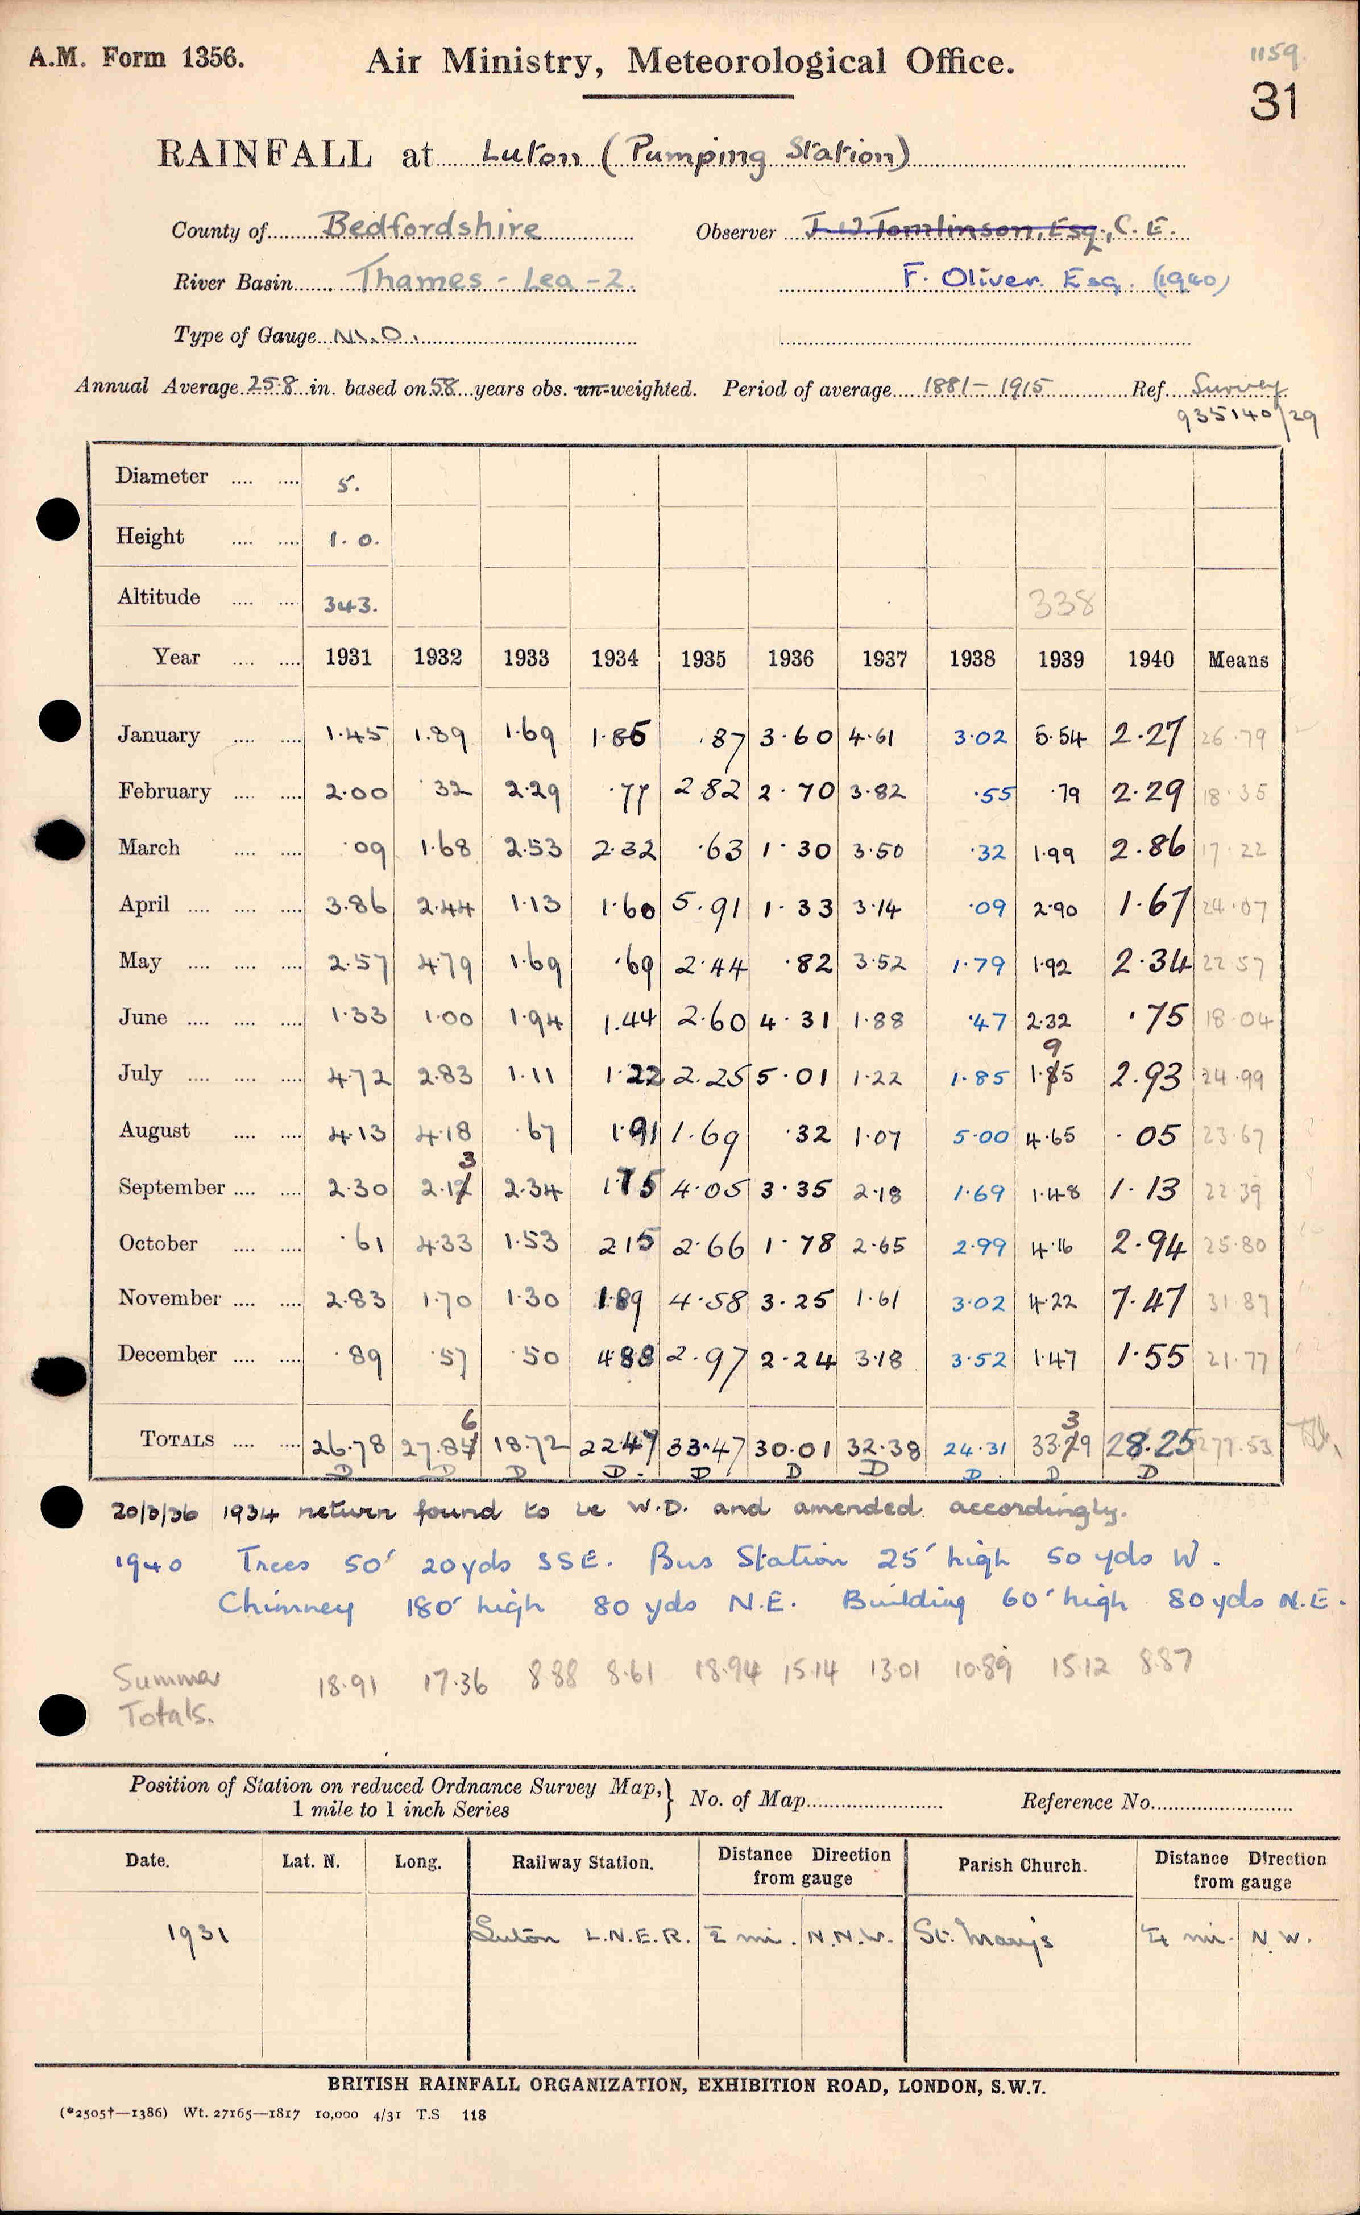 A.M. Form 1356. Air Ministry, Meteorological Office. 1159.
31
RAINFALL at Luton (Pumping Station)
County of Bedfordshire Observer J. W. Tomlinson, Esq., C. E.
River Basin Thames - Lea - 2. F. Oliver. Esq. (1940)
Type of Gauge M.O.
Annual Average 25.8 in. based on 58 years obs. un-weighted. Period of average 1881 - 1915 Ref. Survey
935140/29
Diameter .... .... 5.
Height .... .... 1. 0.
Altitude .... .... 343. 338
Year .... .... 1931 1932 1933 1934 1935 1936 1937 1938 1939 1940 Means
January .... .... 1.45 1.89 1.69 1.85 .87 3.60 4.61 3.02 5.54 2.27 26.79
February .... .... 2.00 .32 2.29 .77 2.82 2.70 3.82 .55 .79 2.29 18.35
March .... .... .09 1.68 2.53 2.32 .63 1.30 3.50 .32 1.99 2.86 17.22
April .... .... .... 3.86 2.44 1.13 1.60 5.91 1.33 3.14 .09 2.90 1.67 24.07
May .... .... .... 2.57 4.79 1.69 .69 2.44 .82 3.52 1.79 1.92 2.34 22.57
June .... .... .... 1.33 1.00 1.94 1.44 2.60 4.31 1.88 .47 2.32 .75 18.04
9
July .... .... .... 4.72 2.83 1.11 1.22 2.25 5.01 1.22 1.85 1.85 2.93 24.99
August .... .... 4.13 4.18 .67 1.91 1.69 .32 1.07 5.00 4.65 .05 23.67
3
September .... .... 2.30 2.12 2.34 1.75 4.05 3.35 2.18 1.69 1.48 1.13 22.39
October .... .... .61 4.33 1.53 2.15 2.66 1.78 2.65 2.99 4.16 2.94 25.80
November .... .... 2.83 1.70 1.30 1.89 4.58 3.25 1.61 3.02 4.22 7.47 31.87
December .... .... .89 .57 .50 4.88 2.97 2.24 3.18 3.52 1.47 1.55 21.77
6 3
TOTALS .... .... 26.78 27.84 18.72 22.47 33.47 30.01 32.38 24.31 33.29 28.25 277.53
D D D D. D D D D. D D
20/3/36 1934 return found to be W.D. and amended accordingly.
1940 Trees 50' 20yds SSE. Bus Station 25' high 50 yds W.
Chimney 180' high 80 yds N.E. Building 60' high 80 yds N.E.
Summer 18.91 17.36 8.88 8.61 18.94 15.14 13.01 10.89 15.12 8.87
Totals.
Position of Station on reduced Ordnance Survey Map, } No. of Map Reference No.
1 mile to 1 inch Series
Date. Lat. N. Long. Railway Station. Distance Direction from gauge Parish Church. Distance Direction from gauge
1931 Luton L.N.E.R. ½ mi. N.N.W. St. Mary's ¼ mi. N.W.
BRITISH RAINFALL ORGANIZATION, EXHIBITION ROAD, LONDON, S.W.7.
(*2505†—1386) Wt. 27165—1817 10,000 4/31 T.S 118